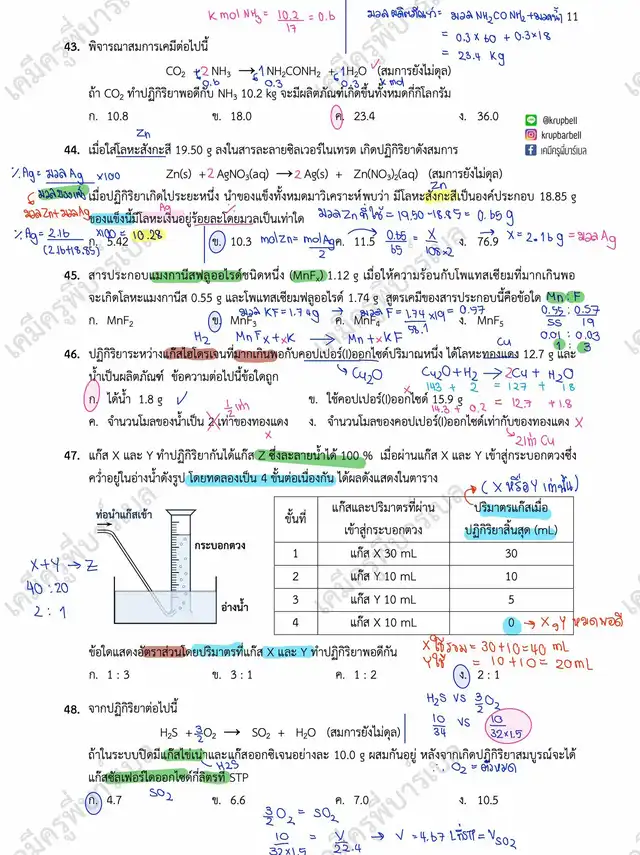 k mol NH₃ = 10.2/17 = 0.6
มวลผลิตภัณฑ์ = มวล NH₂CONH₂ + มวลน้ำ 11
= 0.3×60 + 0.3×18
= 23.4 kg
43. พิจารณาสมการเคมีต่อไปนี้
CO₂ + 2 NH₃ → 1 NH₂CONH₂ + 1 H₂O (สมการยังไม่ดุล)
0.6 0.3 0.3 k mol
ถ้า CO₂ ทำปฏิกิริยาพอดีกับ NH₃ 10.2 kg จะมีผลิตภัณฑ์เกิดขึ้นทั้งหมดกี่กิโลกรัม
ก. 10.8 ข. 18.0 ค. 23.4 ง. 36.0
@krupbell
krupbarbell
เคมีครูพี่บาร์เบล
Zn
44. เมื่อใส่โลหะสังกะสี 19.50 g ลงในสารละลายซิลเวอร์ไนเทรต เกิดปฏิกิริยาดังสมการ
%Ag = มวล Ag / มวลของแข็ง ×100
Zn(s) + 2 AgNO₃(aq) → 2 Ag(s) + Zn(NO₃)₂(aq) (สมการยังไม่ดุล)
มวล Zn + มวล Ag
Zn
เมื่อปฏิกิริยาเกิดไประยะหนึ่ง นำของแข็งทั้งหมดมาวิเคราะห์พบว่า มีโลหะสังกะสีเป็นองค์ประกอบ 18.85 g
Ag
ของแข็งนี้มีโลหะเงินอยู่ร้อยละโดยมวลเป็นเท่าใด
มวล Zn ที่ใช้ = 19.50 - 18.85 = 0.65 g
%Ag = 2.16/(2.16+18.85) ×100 = 10.28
ก. 5.42 ข. 10.3 ค. 11.5 ง. 76.9
mol Zn = mol Ag/2
0.65/65 = X/108×2 → X = 2.16 g = มวล Ag
45. สารประกอบแมงกานีสฟลูออไรด์ชนิดหนึ่ง (MnFₓ) 1.12 g เมื่อให้ความร้อนกับโพแทสเซียมที่มากเกินพอ
จะเกิดโลหะแมงกานีส 0.55 g และโพแทสเซียมฟลูออไรด์ 1.74 g สูตรเคมีของสารประกอบนี้คือข้อใด
Mn : F
มวล KF = 1.74 g → มวล F = 1.74/58.1 ×19 = 0.57
0.55 : 0.57
55 19
0.01 : 0.03
1 : 3
ก. MnF₂ ข. MnF₃ ค. MnF₄ ง. MnF₅
H₂ MnFₓ + xK → Mn + xKF Cu
46. ปฏิกิริยาระหว่างแก๊สไฮโดรเจนที่มากเกินพอกับคอปเปอร์(I)ออกไซด์ปริมาณหนึ่ง ได้โลหะทองแดง 12.7 g และ
น้ำเป็นผลิตภัณฑ์ ข้อความต่อไปนี้ข้อใดถูก
Cu₂O
Cu₂O + H₂ → 2Cu + H₂O
143 + 2 = 127 + 18
14.3 + 0.2 = 12.7 + 1.8
ก. ได้น้ำ 1.8 g ข. ใช้คอปเปอร์(I)ออกไซด์ 15.9 g
1/2 เท่า
ค. จำนวนโมลของน้ำเป็น 2 เท่าของทองแดง ง. จำนวนโมลของคอปเปอร์(I)ออกไซด์เท่ากับของทองแดง
2เท่า Cu
47. แก๊ส X และ Y ทำปฏิกิริยากันได้แก๊ส Z ซึ่งละลายน้ำได้ 100 % เมื่อผ่านแก๊ส X และ Y เข้าสู่กระบอกตวงซึ่ง
คว่ำอยู่ในอ่างน้ำดังรูป โดยทดลองเป็น 4 ขั้นต่อเนื่องกัน ได้ผลดังแสดงในตาราง
(X หรือ Y เท่านั้น)
ท่อนำแก๊สเข้า
กระบอกตวง
อ่างน้ำ
X+Y → Z
40 : 20
2 : 1
ขั้นที่ แก๊สและปริมาตรที่ผ่านเข้าสู่กระบอกตวง ปริมาตรแก๊สเมื่อปฏิกิริยาสิ้นสุด (mL)
1 แก๊ส X 30 mL 30
2 แก๊ส Y 10 mL 10
3 แก๊ส Y 10 mL 5
4 แก๊ส X 10 mL 0 → X, Y หมดพอดี
ข้อใดแสดงอัตราส่วนโดยปริมาตรที่แก๊ส X และ Y ทำปฏิกิริยาพอดีกัน
X ใช้รวม = 30+10 = 40 mL
Y ใช้ = 10+10 = 20 mL
ก. 1 : 3 ข. 3 : 1 ค. 1 : 2 ง. 2 : 1
48. จากปฏิกิริยาต่อไปนี้
H₂S + 3/2 O₂ → SO₂ + H₂O (สมการยังไม่ดุล)
H₂S VS 3/2 O₂
10/34 VS 10/32×1.5
ถ้าในระบบปิดมีแก๊สไข่เน่าและแก๊สออกซิเจนอย่างละ 10.0 g ผสมกันอยู่ หลังจากเกิดปฏิกิริยาสมบูรณ์จะได้
H₂S
∴ O₂ = ตัวหมด
แก๊สซัลเฟอร์ไดออกไซด์กี่ลิตรที่ STP
SO₂
ก. 4.7 ข. 6.6 ค. 7.0 ง. 10.5
3/2 O₂ = SO₂
10/32×1.5 = V/22.4 → V = 4.67 L ที่ STP = V SO₂
เคมีครูพี่บาร์เบล